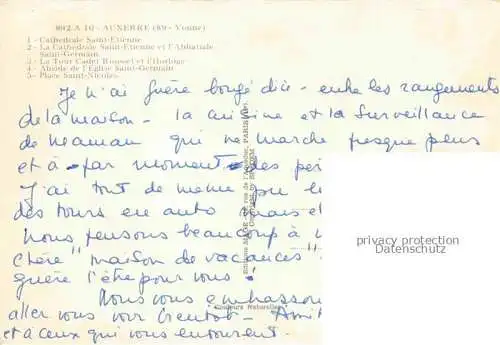 892 A 10 - AUXERRE (89 - Yonne)
1 - Cathédrale Saint-Etienne
2 - La Cathédrale Saint-Etienne et l'Abbatiale
Saint-Germain
3 - La Tour Cadet Roussel et l'Horloge
4 - Abside de l'Eglise Saint-Germain
5 - Place Saint-Nicolas
Je n'ai guère bougé d'ici - entre les rangements
de la maison - la cuisine et la surveillance
de Maman qui ne marche presque plus
et a par moment des
J'ai tout de même
des tours en auto mais
Nous pensons beaucoup à
chère "maison de vacances"
guère l'être pour vous!
Nous vous embrassons
aller vous voir bientôt -
et à ceux qui vous entourent.
Couleurs Naturelles
privacy protection
Datenschutz